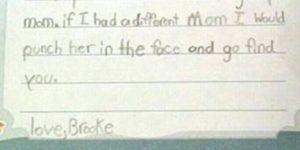 mom. if I had a different Mom I would
punch her in the face and go find
you.
love, Brooke